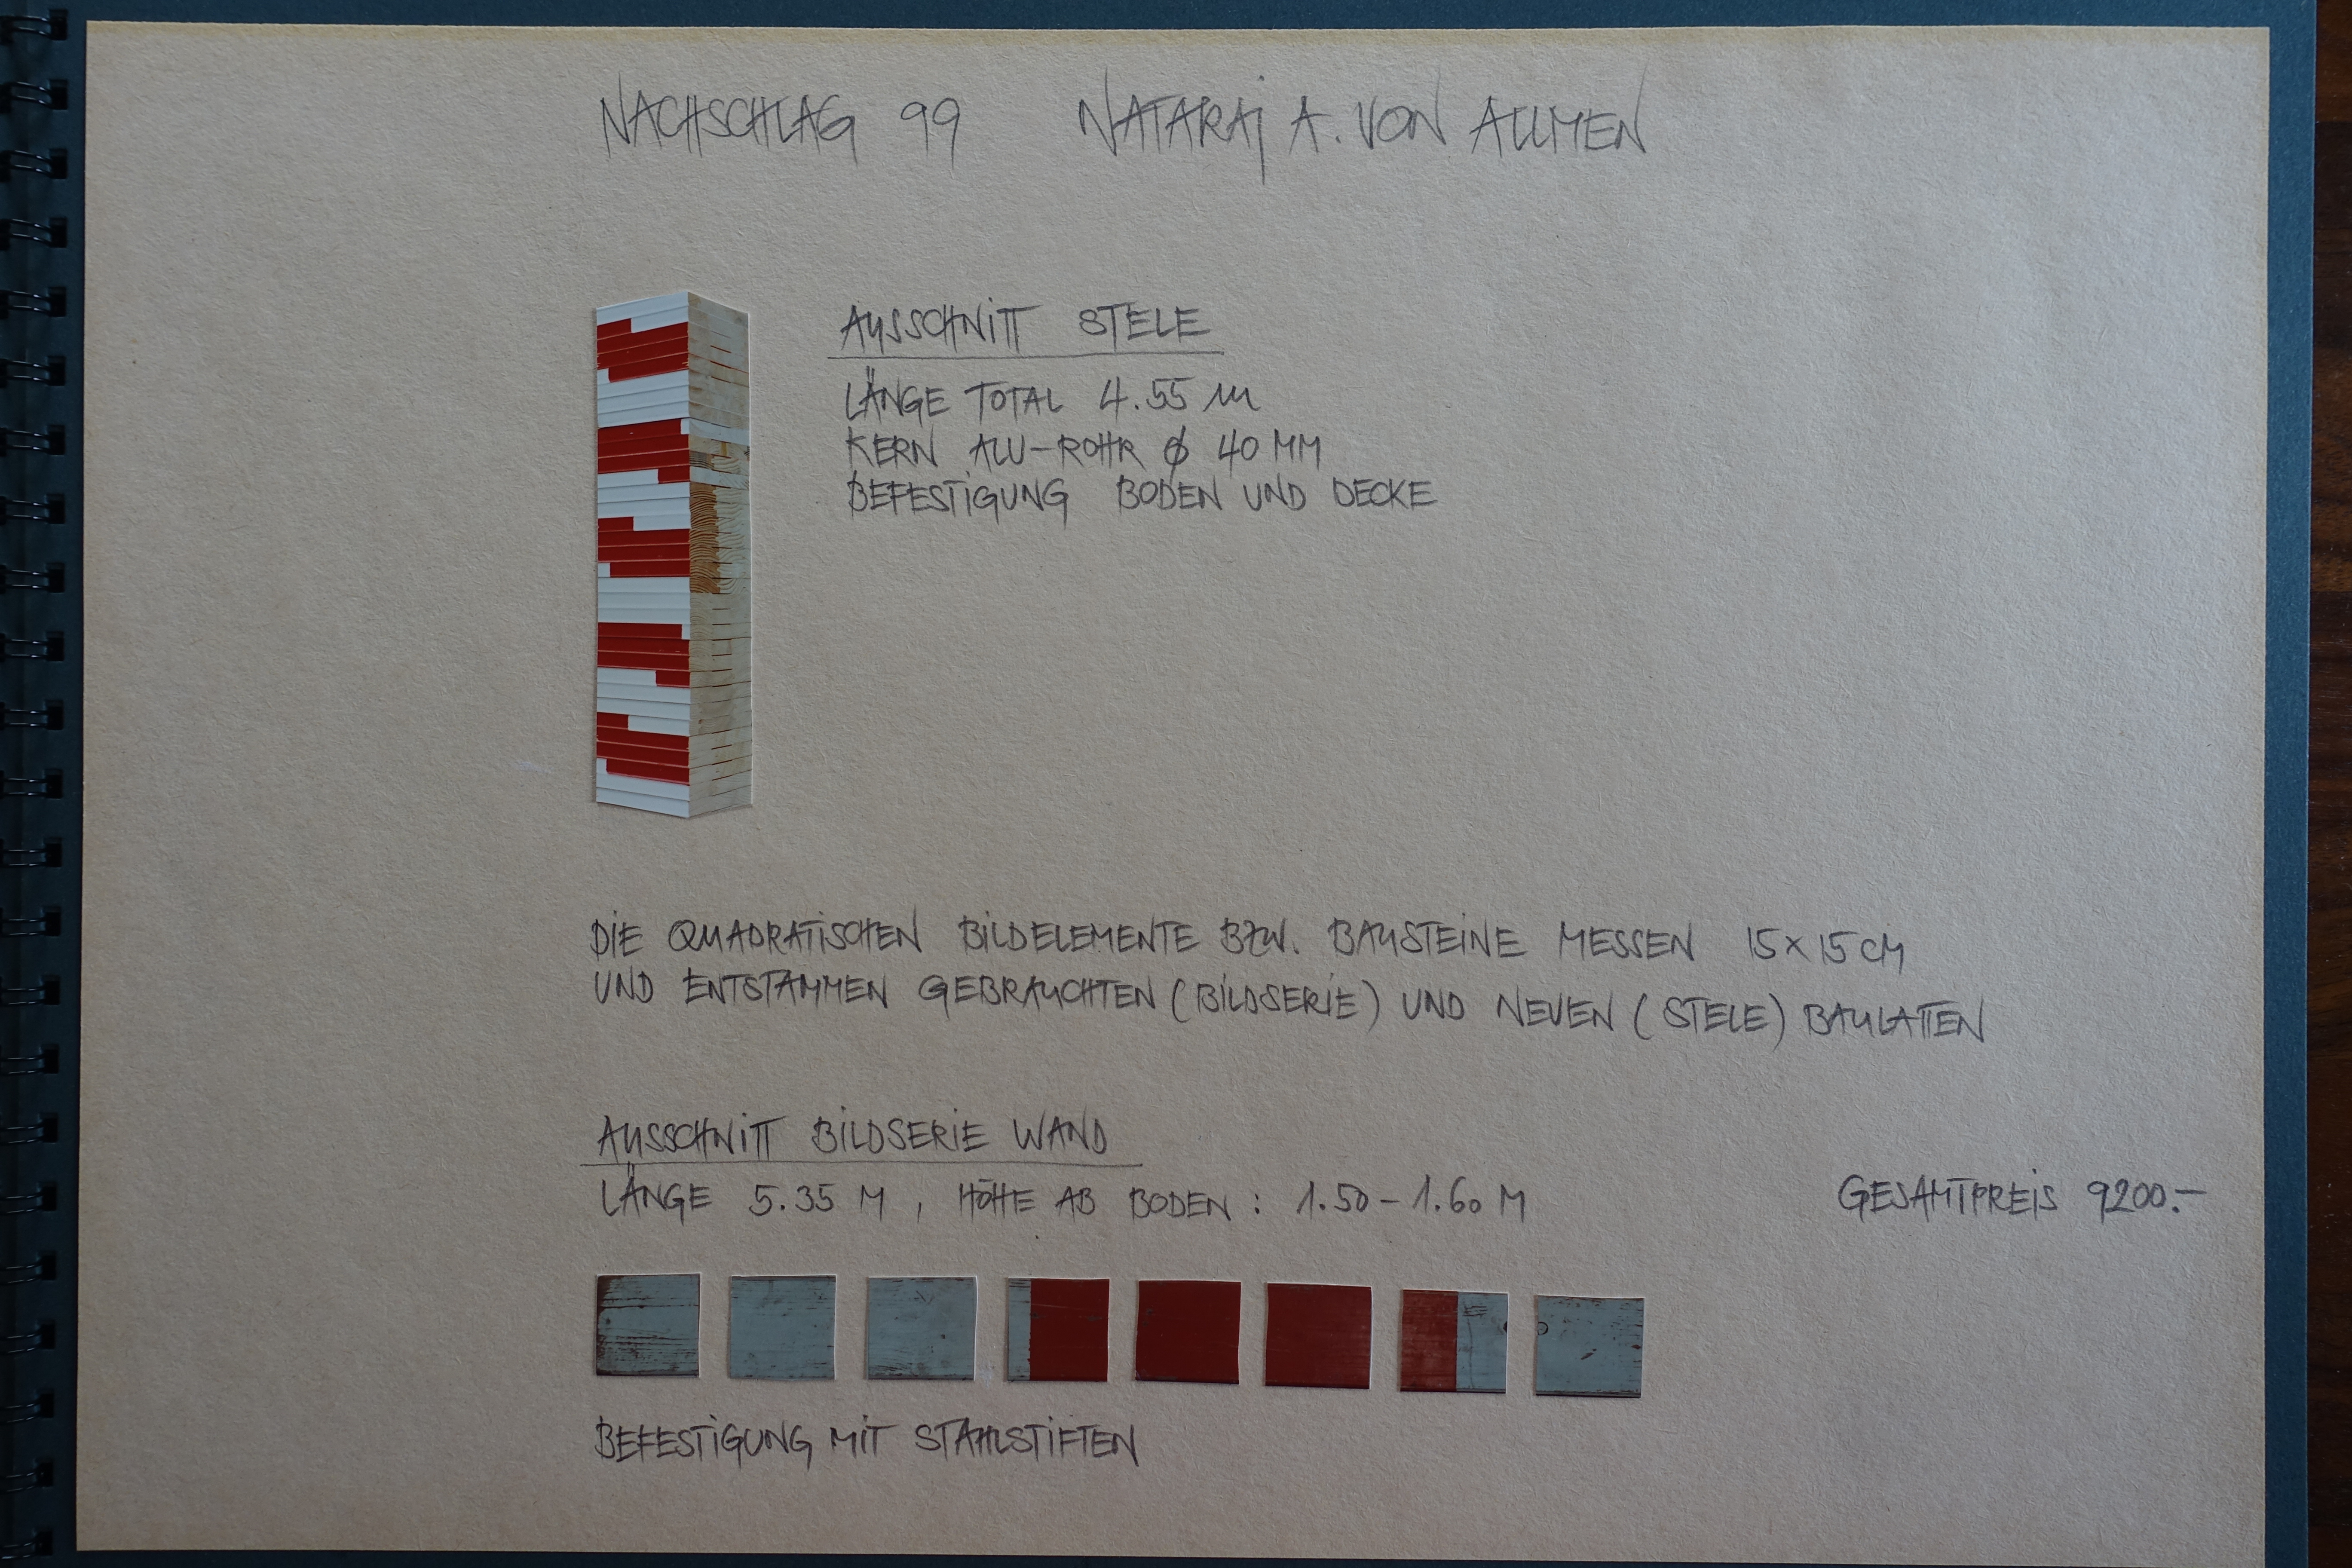 NACHSCHLAG 99 NATARAJ A. VON ALLMEN
AUSSCHNITT STELE
LÄNGE TOTAL 4.55 m
KERN ALU-ROHR Ø 40 MM
BEFESTIGUNG BODEN UND DECKE
DIE QUADRATISCHEN BILDELEMENTE BZW. BAUSTEINE MESSEN 15x15 CM
UND ENTSTAMMEN GEBRAUCHTEN (BILDSERIE) UND NEUEN (STELE) BAULATTEN
AUSSCHNITT BILDSERIE WAND
LÄNGE 5.35 M, HÖHE AB BODEN: 1.50-1.60 M
GESAMTPREIS 9200.-
BEFESTIGUNG MIT STAHLSTIFTEN